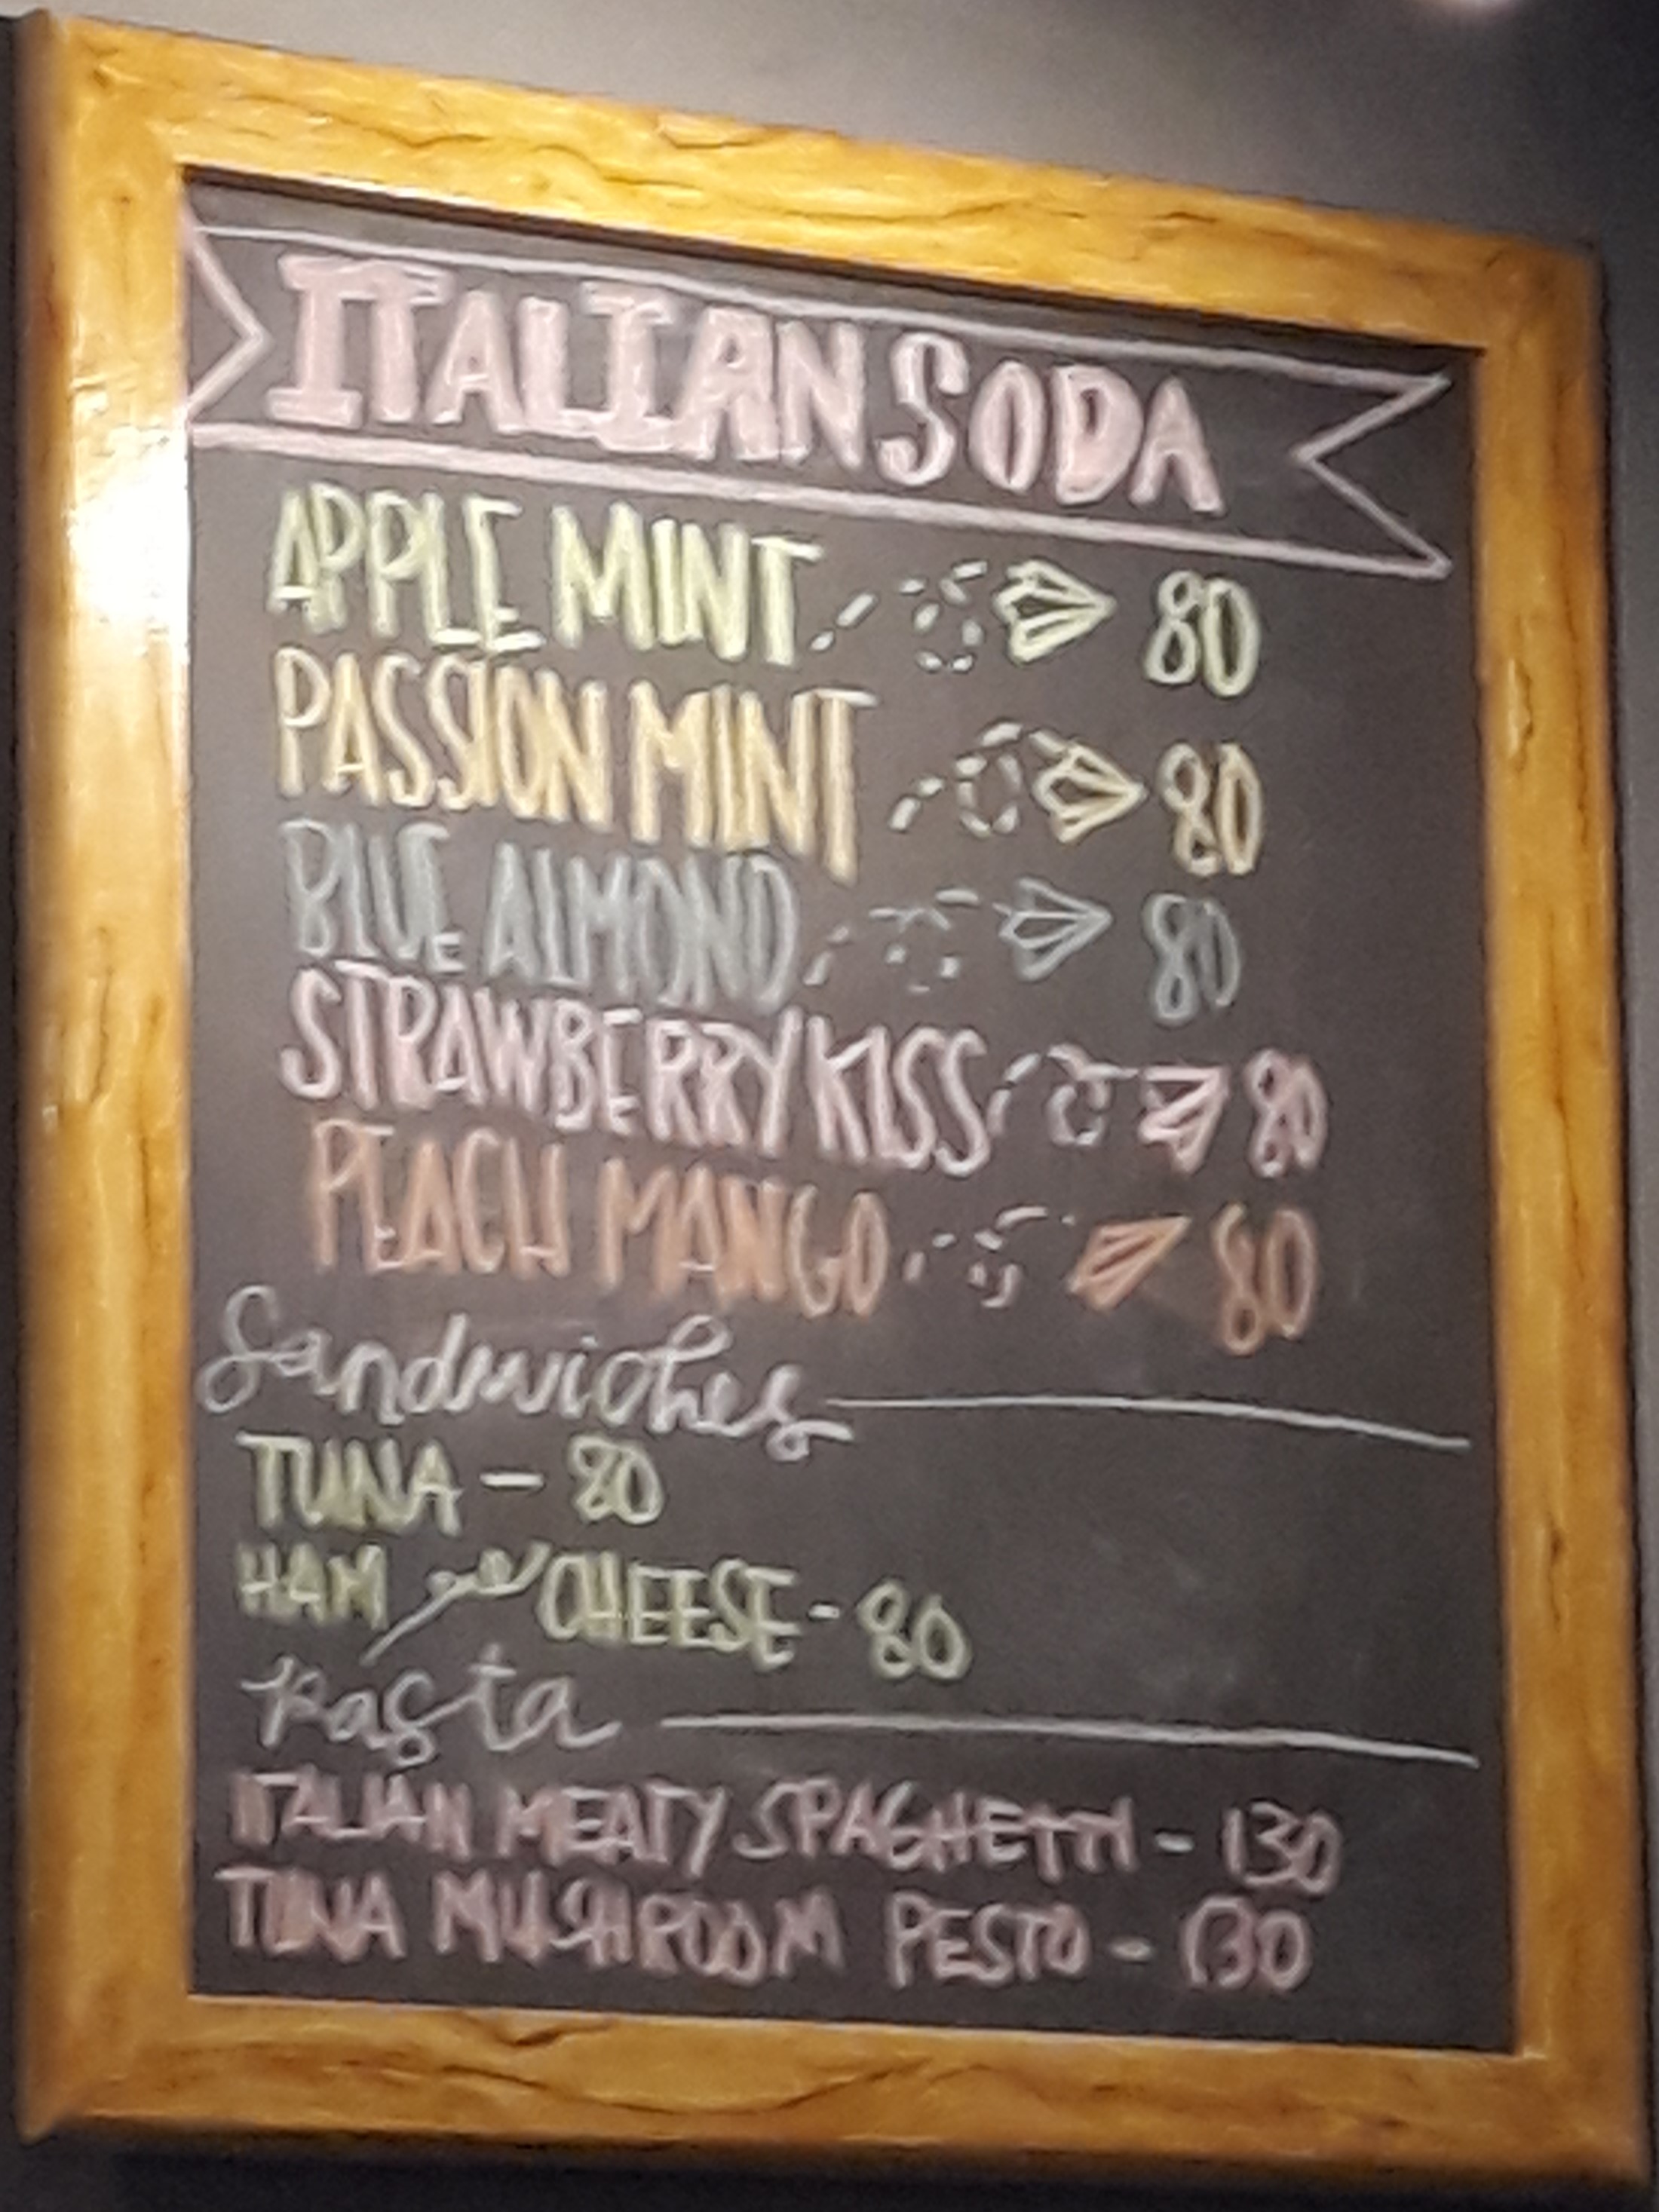 ITALIAN SODA
APPLE MINT 80
PASSION MINT 80
BLUE ALMOND 80
STRAWBERRY KISS 80
PEACH MANGO 80
Sandwiches
TUNA - 80
HAM CHEESE - 80
Pasta
ITALIAN MEATY SPAGHETTI - 130
TUNA MUSHROOM PESTO - 130